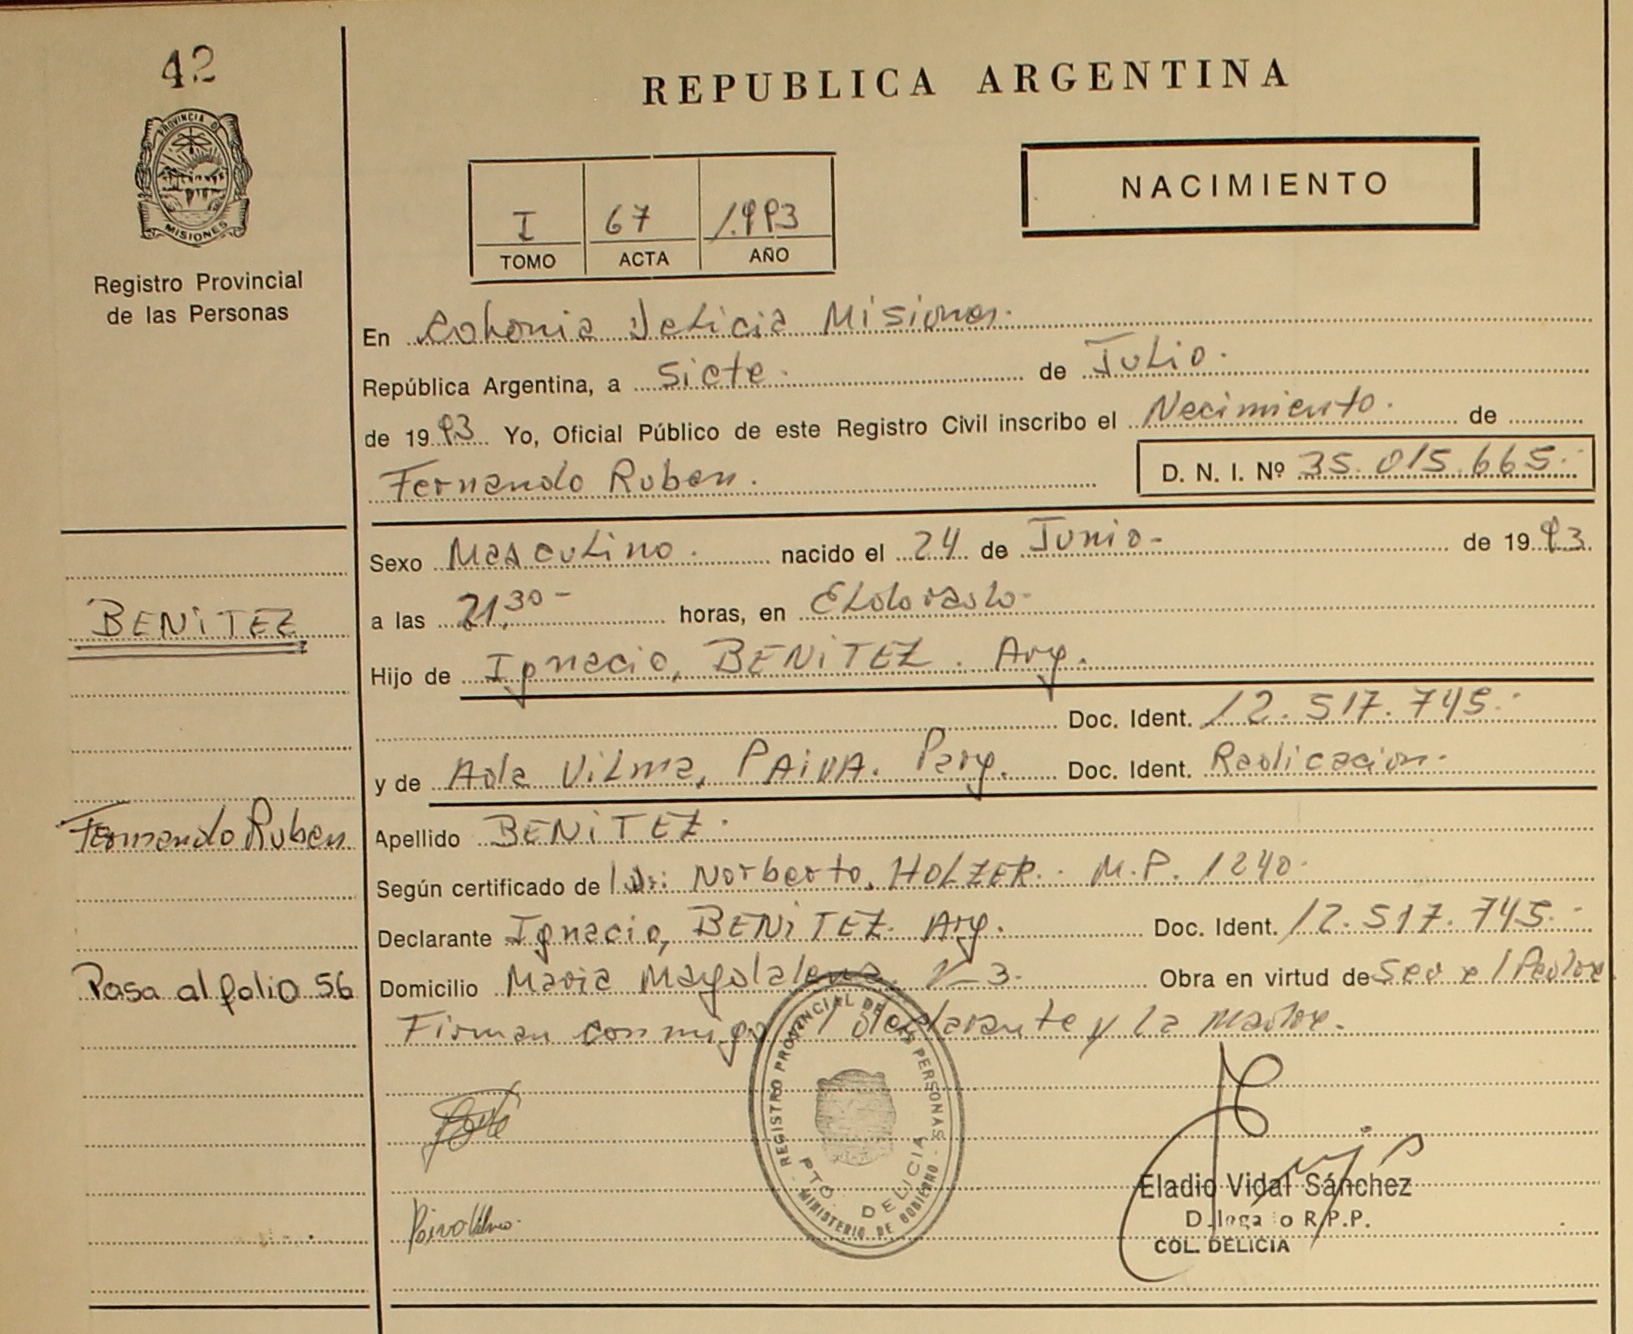 42
REPUBLICA ARGENTINA
PROVINCIA D
MISIONES
Registro Provincial
de las Personas
NACIMIENTO
I 67 1.993
TOMO ACTA AÑO
En Colonia Delicia Misiones.
República Argentina, a Siete. de Julio.
de 1993 Yo, Oficial Público de este Registro Civil inscribo el Nacimiento. de
Fernando Ruben. D. N. I. Nº 35.015.665.-
Sexo Masculino. nacido el 24 de Junio- de 1993.
a las 21,30- horas, en Eldorado-
Hijo de Ignacio, BENiTEZ. Arg.
Doc. Ident. 12.517.745.-
y de Ada Vilma, PAiVA. Parg. Doc. Ident. Radicacion.-
Apellido BENiTEZ.
Según certificado de Dr: Norberto, HOLZER. M.P. 1240.
Declarante Ignacio, BENiTEZ. Arg. Doc. Ident. 12.517.745.-
Domicilio Maria Magdalena K-3. Obra en virtud de Ser e/Padre
Firman conmigo / declarante y la madre.
BENiTEZ
Fernando Ruben
Pasa al folio 56
REGISTRO PROVINCIAL DE LAS PERSONAS
PTO. DELICIA
MINISTERIO DE GOBIERNO
Paiva Vilma.
Eladio Vidal Sánchez
Delegado R.P.P.
COL. DELICIA